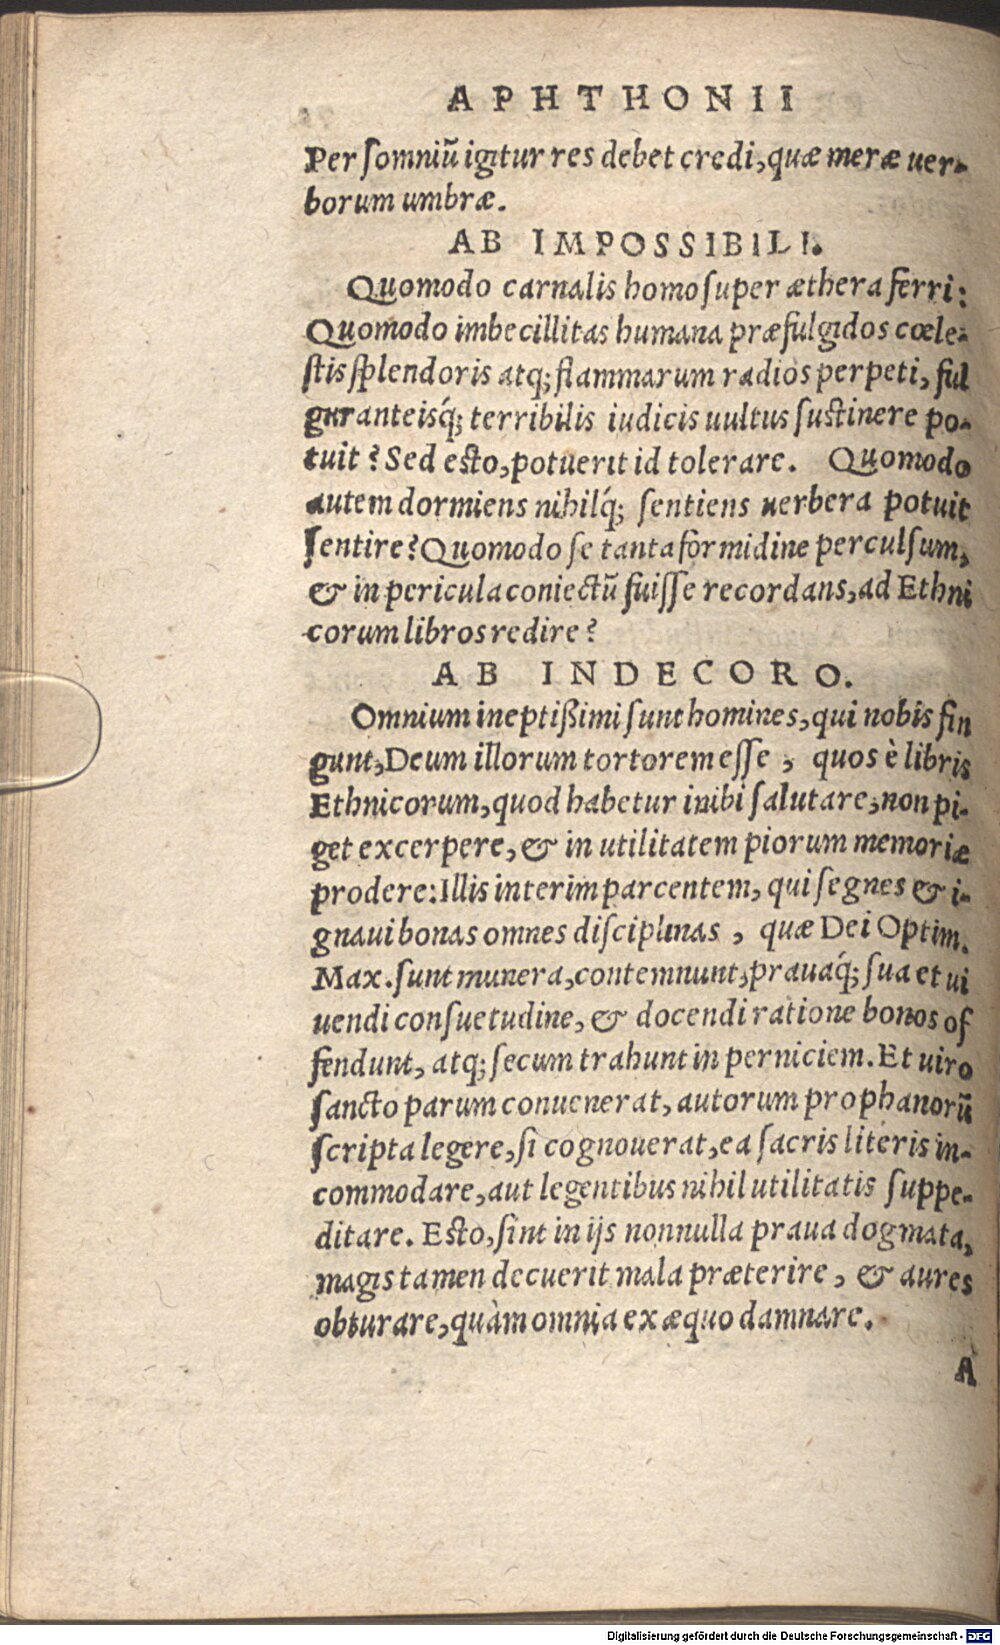 APHTHONII
Per ſomniũ igitur res debet credi, quæ meræ uer-
borum umbræ.
AB IMPOSSIBILI.
Quomodo carnalis homo ſuper æthera ferri:
Quomodo imbecillitas humana præfulgidos cœle-
ſtis ſplendoris atq; flammarum radios perpeti, ful
guranteisq́; terribilis iudicis uultus ſuſtinere po-
tuit? Sed eſto, potuerit id tolerare. Quomodo
autem dormiens nihilq́; ſentiens uerbera potuit
ſentire? Quomodo ſe tanta formidine perculſum,
& in pericula coniectũ fuiſſe recordans, ad Ethni
corum libros redire?
AB INDECORO.
Omnium ineptißimi ſunt homines, qui nobis fin
gunt, Deum illorum tortorem eſſe, quos è libris
Ethnicorum, quod habetur inibi ſalutare, non pi-
get excerpere, & in utilitatem piorum memoriæ
prodere: Illis interim parcentem, qui ſegnes & i-
gnaui bonas omnes diſciplinas, quæ Dei Optim.
Max. ſunt munera, contemnunt, prauaq́; ſua et ui
uendi conſuetudine, & docendi ratione bonos of
fendunt, atq; ſecum trahunt in perniciem. Et uiro
ſancto parum conuenerat, autorum prophanorũ
ſcripta legere, ſi cognouerat, ea ſacris literis in-
commodare, aut legentibus nihil utilitatis ſuppe-
ditare. Eſto, ſint in ijs nonnulla praua dogmata,
magis tamen decuerit mala præterire, & aures
obturare, quàm omnia ex æquo damnare.
A
Digitalisierung gefördert durch die Deutsche Forschungsgemeinschaft - DFG